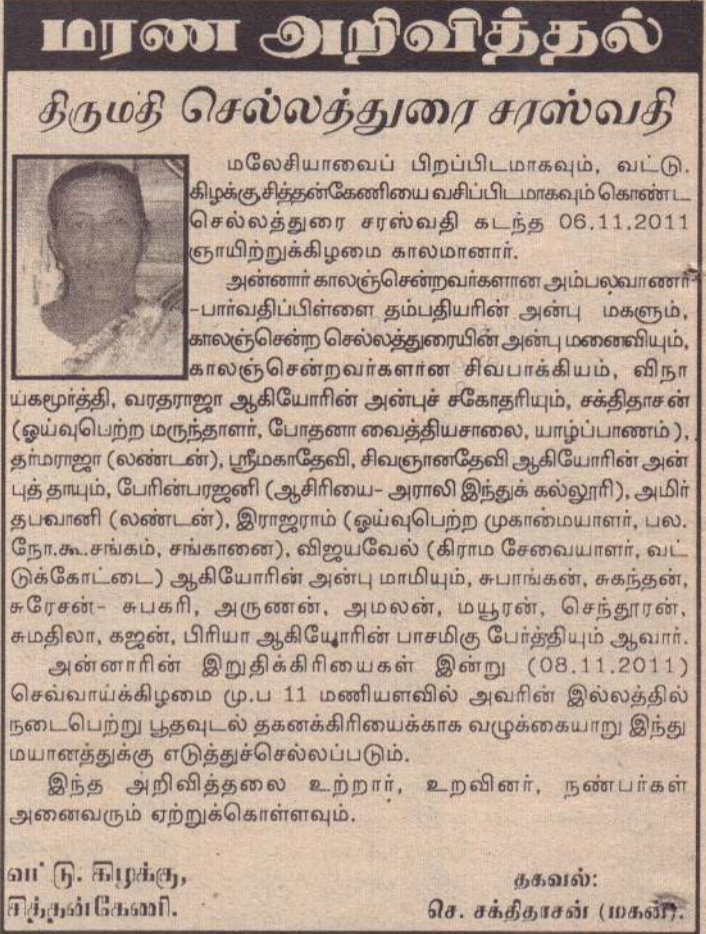 மரண அறிவித்தல்
திருமதி செல்லத்துரை சரஸ்வதி
மலேசியாவைப் பிறப்பிடமாகவும், வட்டு.
கிழக்கு,சித்தன்கேணியை வசிப்பிடமாகவும் கொண்ட
செல்லத்துரை சரஸ்வதி கடந்த 06.11.2011
ஞாயிற்றுக்கிழமை காலமானார்.
அன்னார் காலஞ்சென்றவர்களான அம்பலவாணர்
-பார்வதிப்பிள்ளை தம்பதியரின் அன்பு மகளும்,
காலஞ்சென்ற செல்லத்துரையின் அன்பு மனைவியும்,
காலஞ்சென்றவர்களான சிவபாக்கியம், விநா
யகமூர்த்தி, வரதராஜா ஆகியோரின் அன்புச் சகோதரியும், சக்திதாசன்
(ஓய்வுபெற்ற மருந்தாளர், போதனா வைத்தியசாலை, யாழ்ப்பாணம்),
தர்மராஜா (லண்டன்), ஸ்ரீமகாதேவி, சிவஞானதேவி ஆகியோரின் அன்
புத் தாயும், பேரின்பரஜனி (ஆசிரியை- அராலி இந்துக் கல்லூரி), அமிர்
தபவானி (லண்டன்), இராஜராம் (ஓய்வுபெற்ற முகாமையாளர், பல.
நோ.கூ.சங்கம், சங்கானை), விஜயவேல் (கிராம சேவையாளர், வட்
டுக்கோட்டை) ஆகியோரின் அன்பு மாமியும், சுபாங்கன், சுகந்தன்,
சுரேசன்- சுபகரி, அருணன், அமலன், மயூரன், செந்தூரன்,
சுமதிலா, கஜன், பிரியா ஆகியோரின் பாசமிகு பேர்த்தியும் ஆவார்.
அன்னாரின் இறுதிக்கிரியைகள் இன்று (08.11.2011)
செவ்வாய்க்கிழமை மு.ப 11 மணியளவில் அவரின் இல்லத்தில்
நடைபெற்று பூதவுடல் தகனக்கிரியைக்காக வழுக்கையாறு இந்து
மயானத்துக்கு எடுத்துச்செல்லப்படும்.
இந்த அறிவித்தலை உற்றார், உறவினர், நண்பர்கள்
அனைவரும் ஏற்றுக்கொள்ளவும்.
வட்டு. கிழக்கு,
சித்தன்கேணி.
தகவல்:
செ. சக்திதாசன் (மகன்).